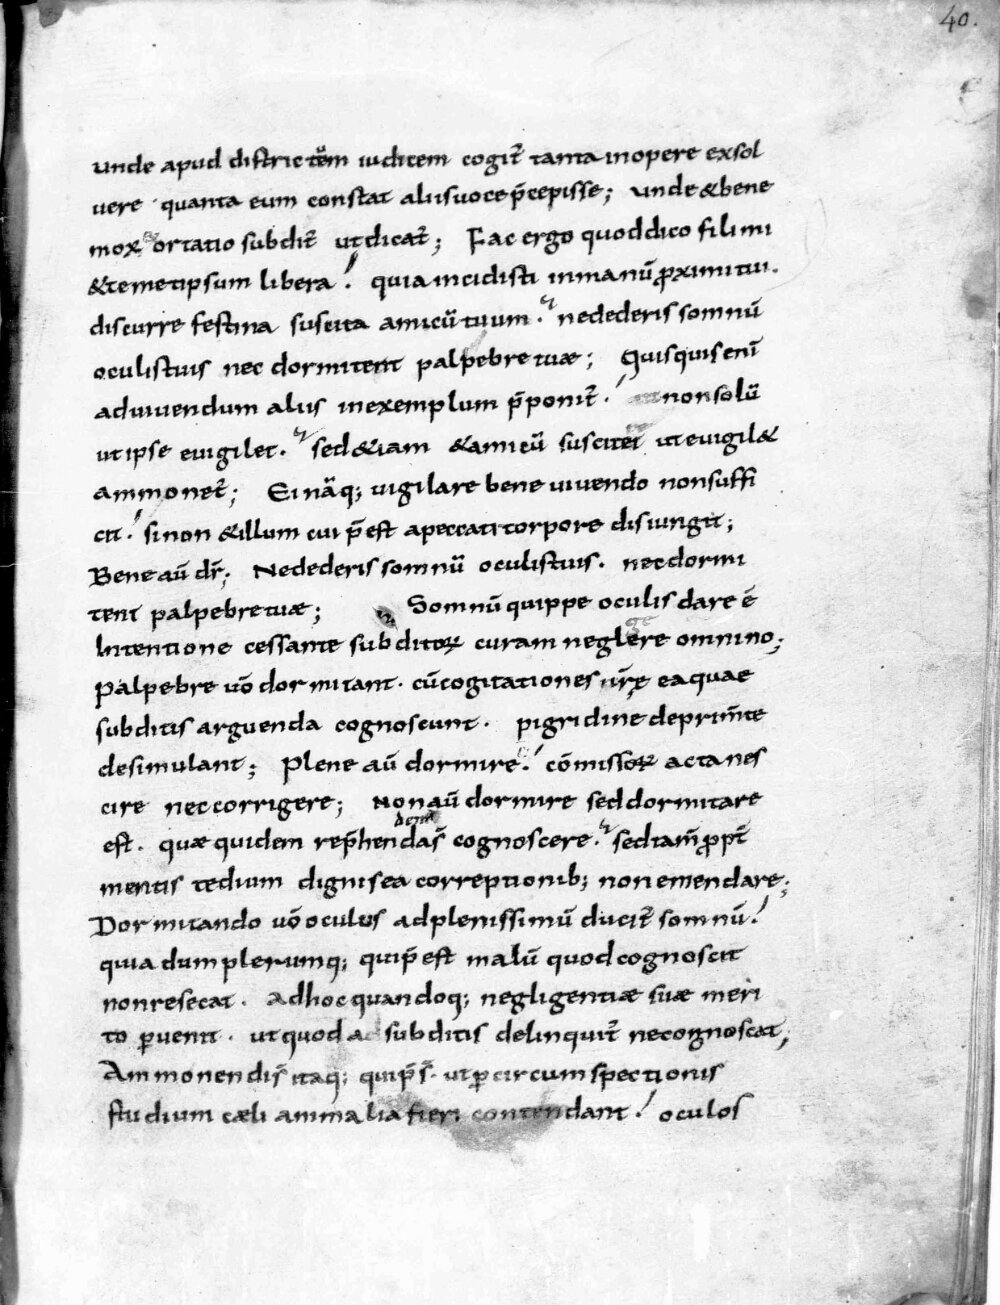 40.
unde apud districtēm iudicem cogit̄ tanta inopere exsol
uere quanta eum constat aliis uoce p̄cepisse; unde & bene
mox ortatio subdit̄ ut dicat̄; Fac ergo quod dico fili mi
& temetipsum libera! quia incidisti inmanū ꝓximi tui.
discurre festina suscita amicū tuum. ne dederis somnū
oculis tuis nec dormitent palpebre tuæ; Quisquis eni̅
aduiuendum aliis inexemplum p̄ponit̄! non solū
ut ipse euigilet. sed &iam & amicū suscitet ut euigil&
ammonet̄; Ei nāq; uigilare bene uiuendo non suffi
cit! si non & illum cui p̄est apeccati torpore disiungit;
Bene aū dr̄; Ne dederis somnū oculis tuis. nec dormi
tent palpebre tuæ; Somnū quippe oculis dare ē
Intentione cessante subditoꝝ curam neglere omnino;
ge
Palpebre uō dormitant. cū cogitationes ur̄e ea quae
subditis arguenda cognoscunt. pigridine deprim̄te
desimulant; Plene aū dormire! cōmissoꝝ acta nes
cire nec corrigere; Non aū dormire sed dormitare
est. quæ quidem rep̄hendas̄ cognoscere. sed tam̄ ꝓpt̄
mentis tedium dignis ea correptionib; non emendare;
Dormitando uō oculus adplenissimū ducit̄ somnū!
quia dum plerumq; qui p̄est malū quod cognoscit
non resecat. adhoc quandoq; negligentiæ suæ meri
to ꝑuenit. ut quod a subditis delinquit̄ nec ognoscat;
Ammonendis̄ itaq; qui p̄s̄. ut ꝑ circumspectionis
studium cæli animalia fieri contendant! oculos